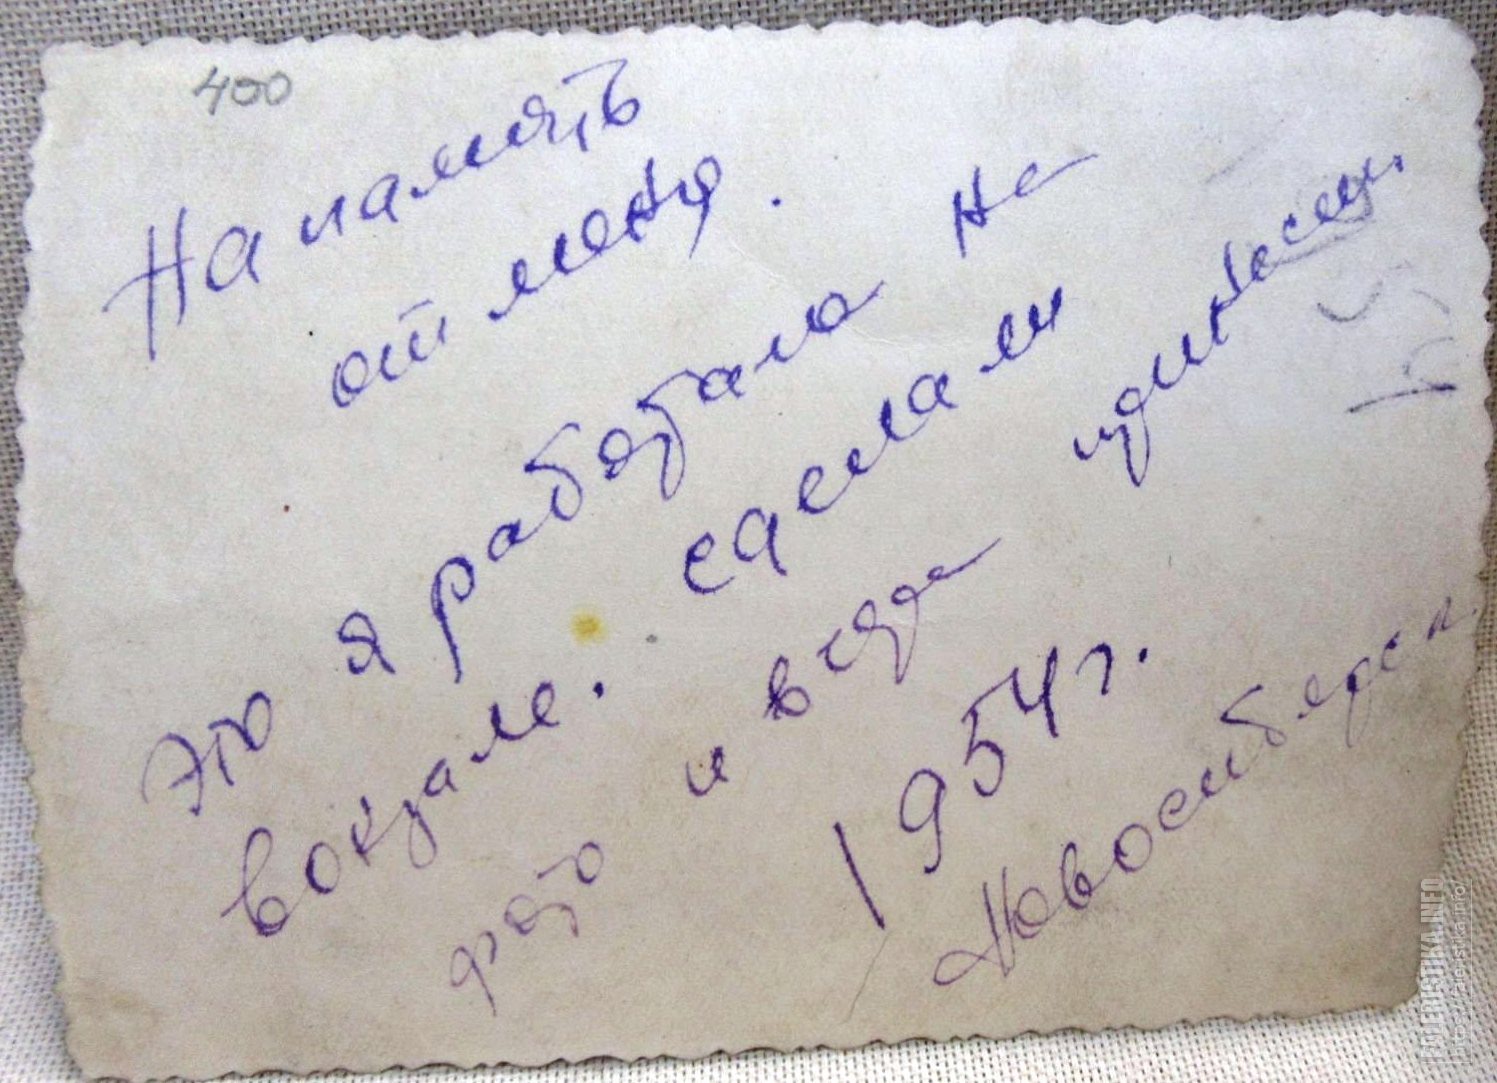 400
На память
от меня.
Это я работала на
вокзале.
фото и
1954 г.
Новосибирск
FALERISTIKA.INFO